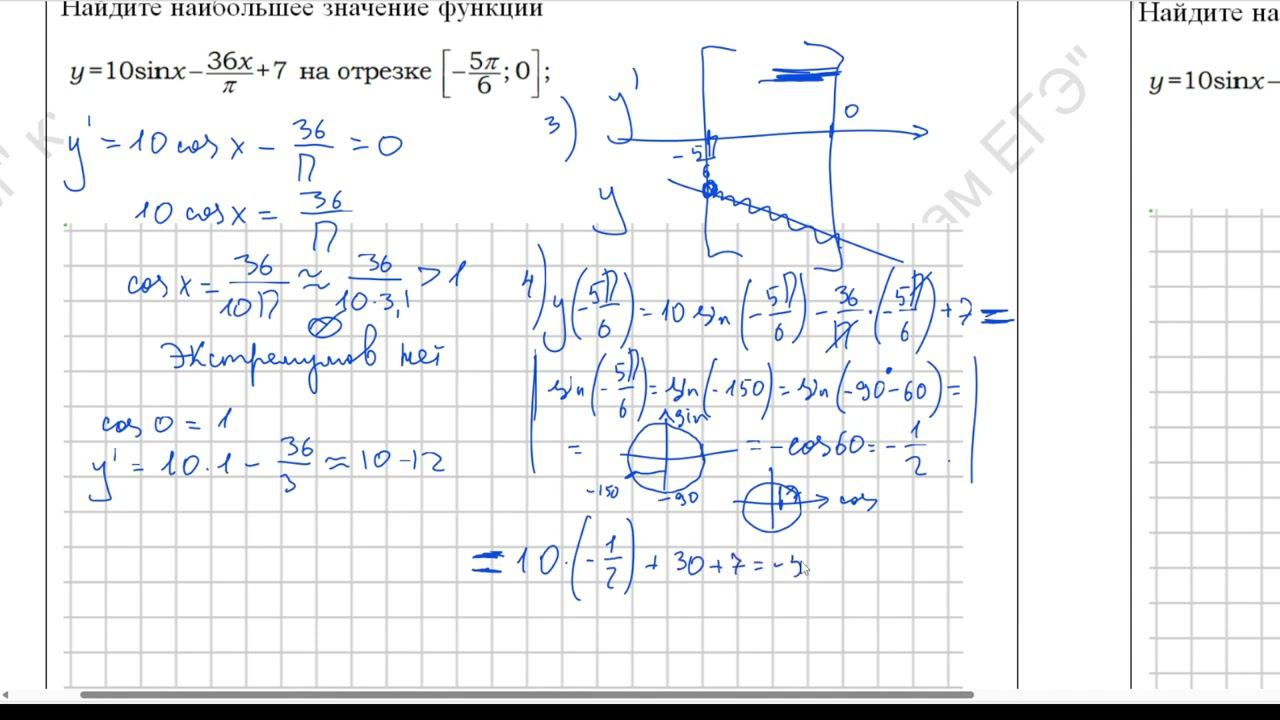 Найдите наибольшее значение функции
y=10sinx−36x/π+7 на отрезке [−5π/6;0];
y' = 10 cos x − 36/П = 0
10 cos x = 36/П
cos x = 36/10П ≈ 36/10·3,1 > 1
Экстремумов нет
cos 0 = 1
y' = 10·1 − 36/3 ≈ 10−12
3)
y'
−5П/6
0
y
4) y(−5П/6) = 10 sin(−5П/6) − 36/П·(−5П/6) + 7 =
sin(−5П/6) = sin(−150) = sin(−90°−60) =
= sin −150 −90 = −cos60 = −1/2.
cos
= 10·(−1/2) + 30+7 = −5
Найдите на
y=10sinx−
ам ЕГЭ"
" К